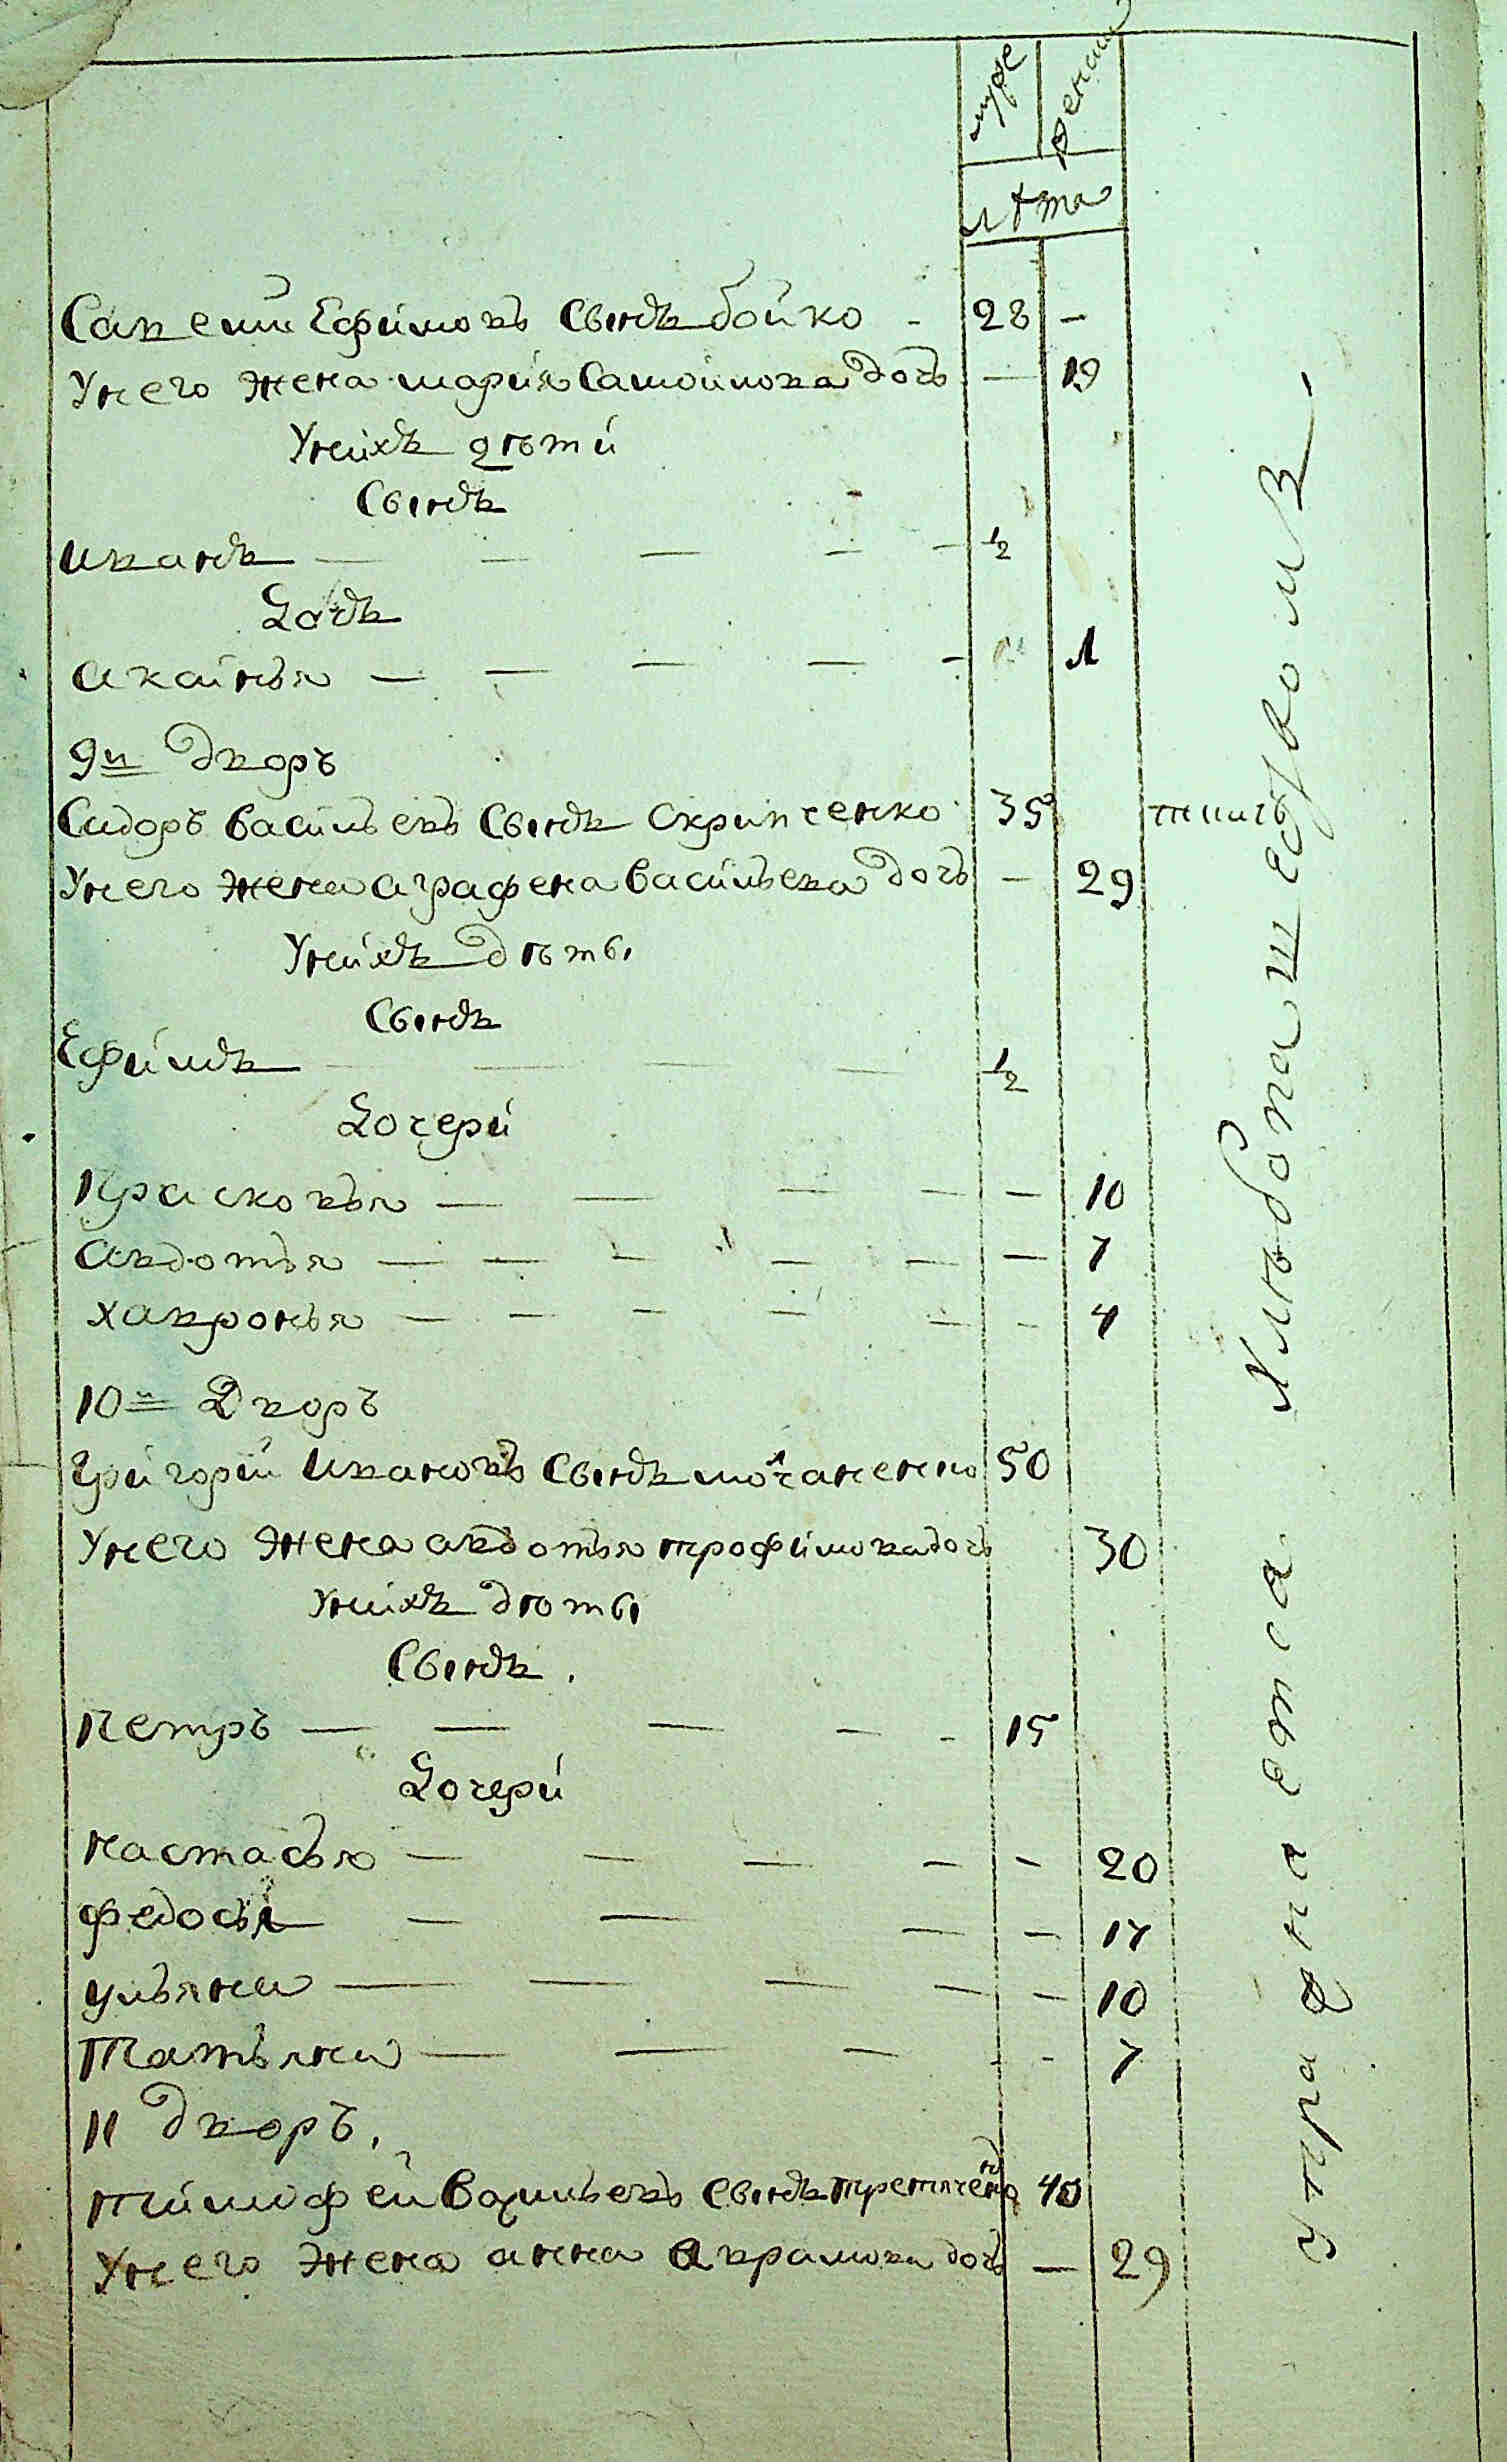 муже женш
лѣта
Савелий Ефимовъ Сынъ бойко - 28 -
Унего жена мария Самойлова дочь - 19
Унихъ дѣти
Сынъ
иванъ — — — — - 1/2
Дочь
акси́нья — — — — - 1
9й дворъ
Сидоръ василь евъ Сынъ Скрипченко 35 ткачь
Унего жена аграфена васильева дочь - 29
Унихъ дѣты
Сынъ
Ефимъ — — — — 1/2
Дочери
Прасковья — — — — - 10
авдотья — — — — — - 7
хавронья — — — — — - 4
10й Дворъ
Григорей ивановъ Сынъ молчаненко 50
Унего жена авдотья трофимова дочь 30
Унихъ дѣты
Сынъ.
петръ — — — — - 15
Дочери
настасья — — — — - 20
федосья — — — - 17
ульяна — — — — - 10
татьяна — — — - - 7
11 дворъ.
тимофей васильевъ Сынъ третяченко 40
Унего жена анна аврамова дочь — 29
упра
Хлѣбопашеством